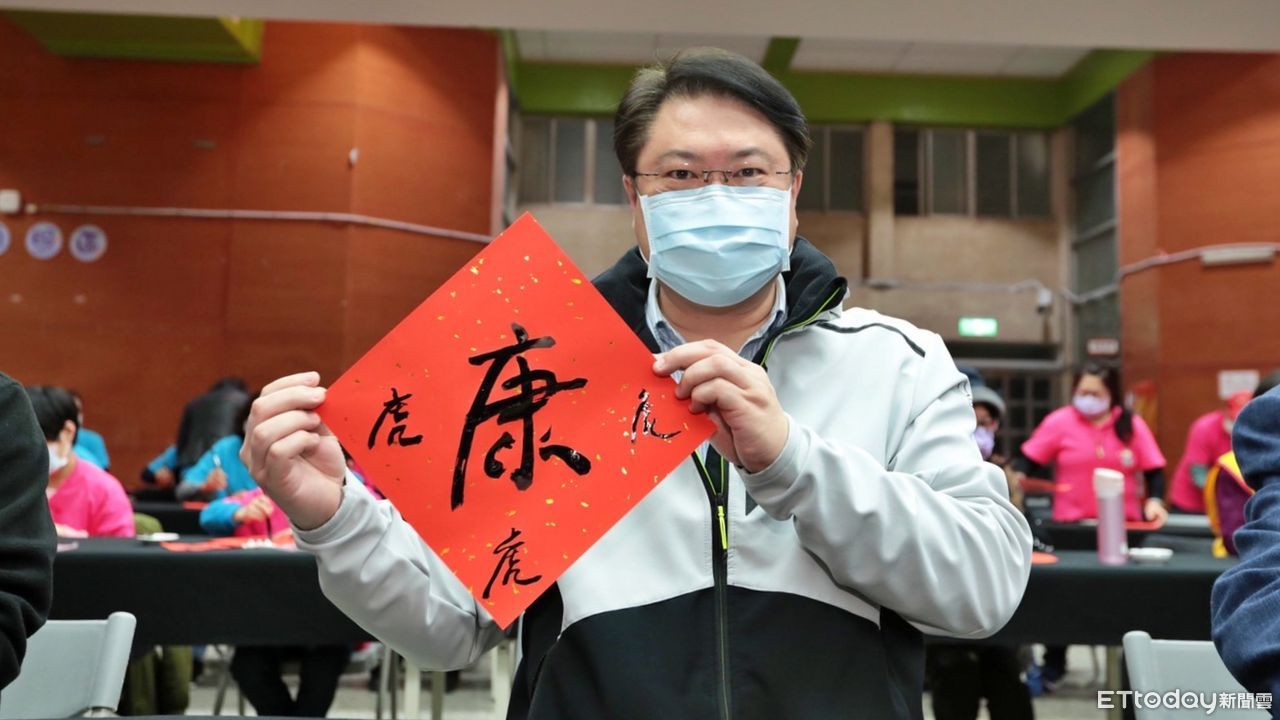 康
虎
虎
虎
ETtoday新聞雲